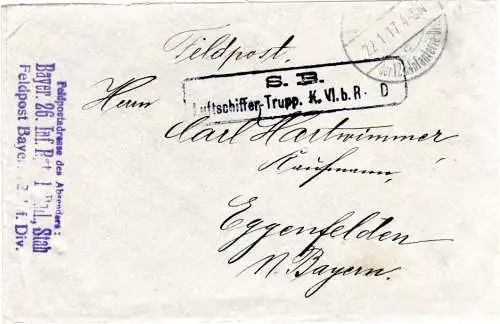 Feldpost.
22.1.17.4-5N
S. B.
Luftschiffer-Trupp. K. VI. b. R. D
Herrn
Carl Hartwimmer
Kaufmann,
Eggenfelden
N. Bayern.
Feldpostadresse des Absenders:
Bayer. 26. Inf. Rgt. 1 Batl. Stab
Feldpost Bayer. Inf. Div.